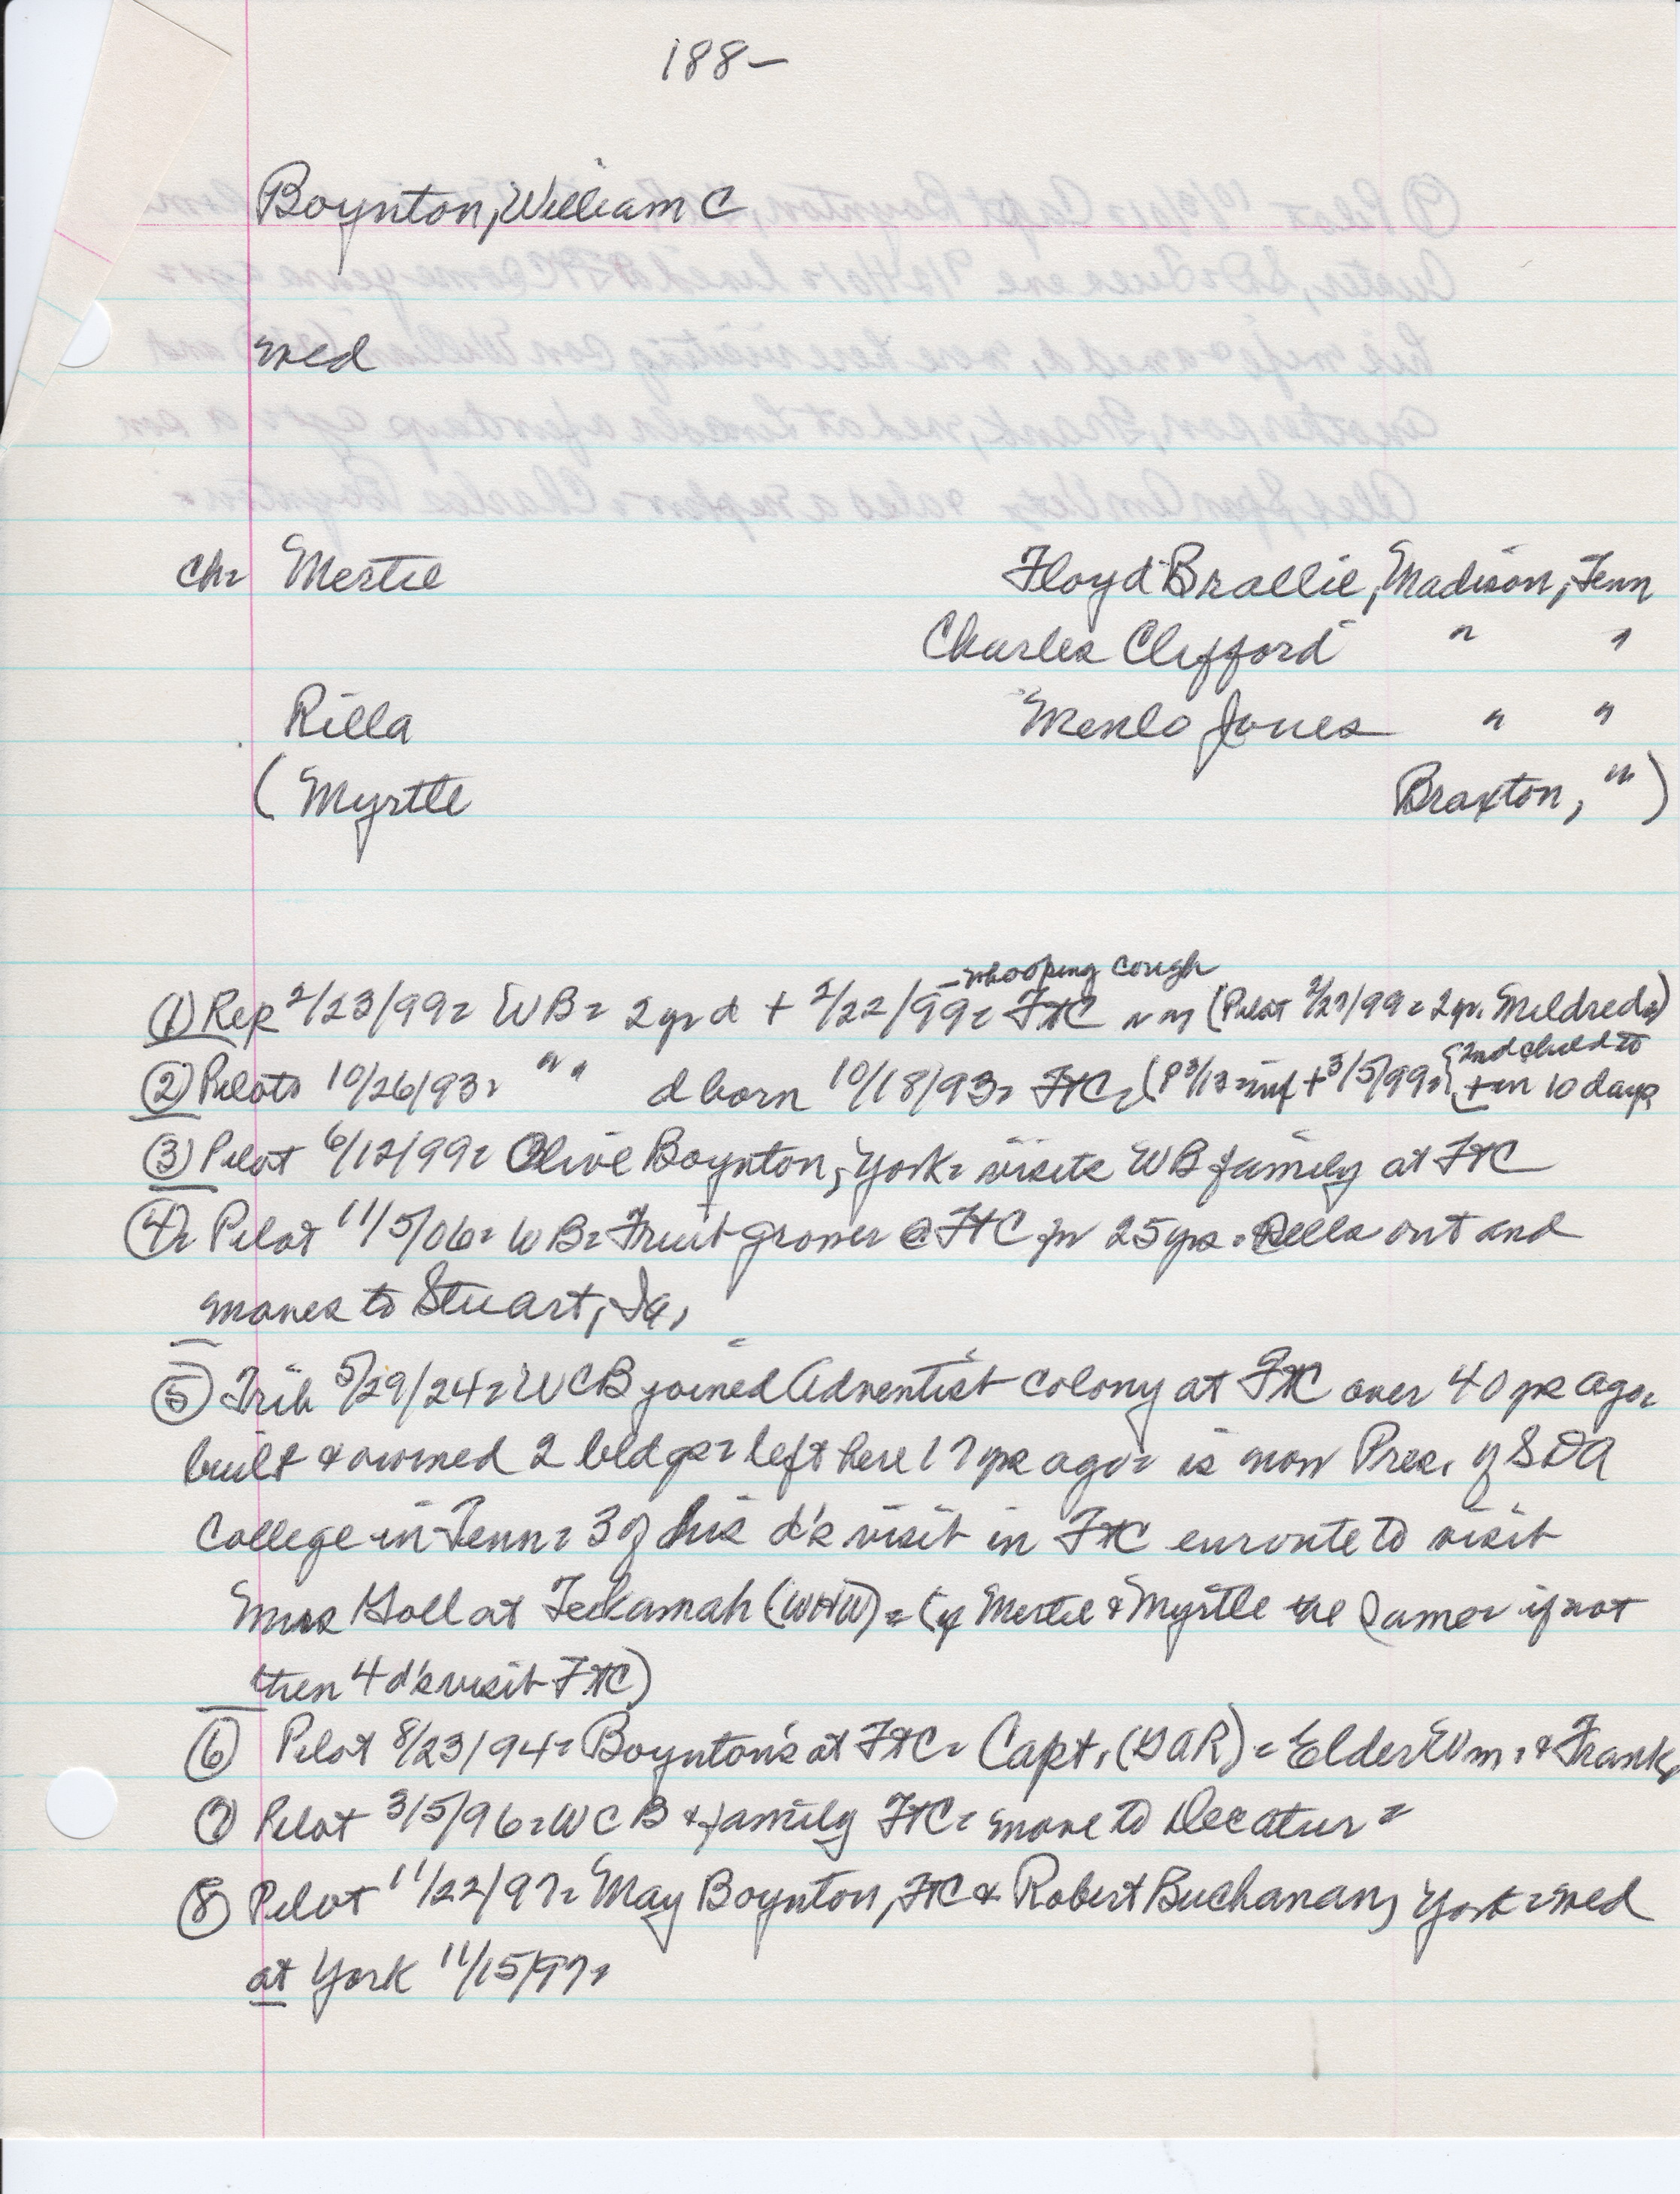 188-
Boynton, William C
med
ch= Mertie Floyd Brallie, Madison, Tenn
Charles Clifford " "
Rilla Menlo Jones " "
(Myrtle Braxton, ")
- whooping cough
(1) Rep 2/23/99= WB= 2 yr d + 2/22/99= FtC (Pilot 2/27/99= 2 yr. Mildred=)
2nd child to
(2) Pilot= 10/26/93= " " d born 10/18/93= FtC= (P 3/13= inf + 3/5/99= + in 10 days
(3) Pilot 6/12/99= Olive Boynton, York= visits WB family at FtC
(4)= Pilot 11/5/06= WB= Fruit grower @ FtC for 25 yrs. Sells out and
moves to Stuart, Ia,
(5) Trib 5/29/24= WCB joined Adventist colony at FtC over 40 yrs ago=
built & owned 2 bldgs= left here 17 yrs ago= is now Pres. of SDA
College in Tenn= 3 of his d's visit in FtC enroute to visit
Mrs Goll at Tekamah (WHW)= (if Mertie & Myrtle the same= if not
then 4 d's visit FtC)
(6) Pilot 8/23/94= Boynton's at FtC= Capt. (GAR)= Elder Wm. & Frank
(7) Pilot 3/5/96= WCB & family FtC= move to Decatur=
(8) Pilot 11/22/97= May Boynton, FtC & Robert Buchanan, York= med
at York 11/15/97=